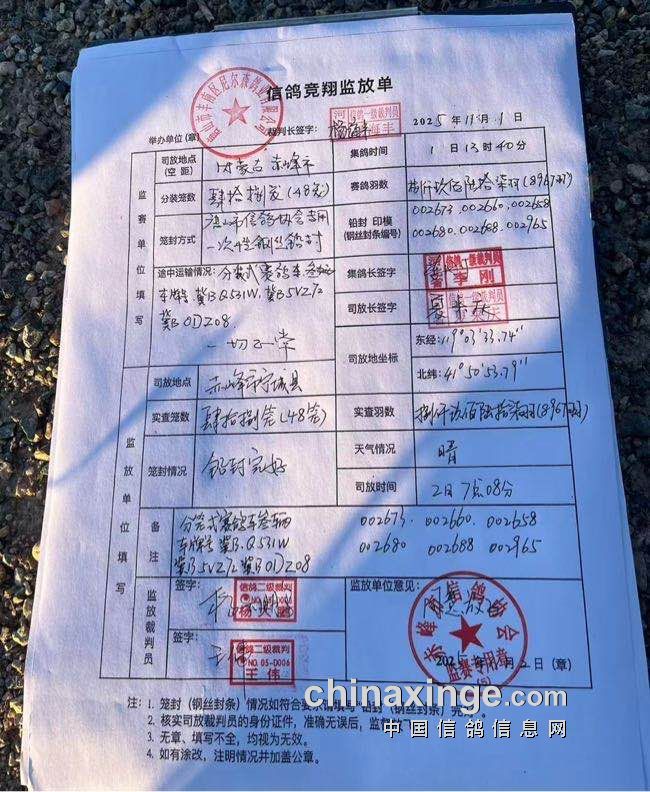 信鸽竞翔监放单
举办单位(章) 裁判长签字: 2025 年 11 月 1 日
河 信鸽一级裁判员
监赛单位填写
司放地点(空距) 内蒙古 赤峰市 集鸽时间 1日13时40分
分装笼数 肆拾捌笼(48笼) 赛鸽羽数 捌仟玖佰陆拾柒羽(8967羽)
笼封方式 唐山市信鸽协会专用一次性钢丝铅封
铅封 印模(钢丝封条编号) 002673、002660、002658
002680、002608、002965
途中运输情况: 分笼式赛鸽车叁辆
车牌 冀B Q531W、冀B 5VZ72
冀B 0DZ08
一切正常
集鸽长签字 信鸽一级裁判员 李 刚
司放长签字 信鸽一级裁判员
司放地坐标 东经: 119°03′33.74″
北纬: 41°50′53.79″
监放单位填写
司放地点 赤峰市宁城县
实查笼数 肆拾捌笼(48笼) 实查羽数 捌仟玖佰陆拾柒羽(8967羽)
笼封情况 铅封完好 天气情况 晴
司放时间 2日7点08分
备注 分笼式赛鸽车叁辆 002673、 002660、 002658
车牌号 冀B·Q531W 002680 002688 002965
冀B 5VZ72 冀B 0DZ08
监放裁判员
签字: 信鸽二级裁判
签字: 王伟 信鸽二级裁判 NO.05-D006 王 伟
监放单位意见:
赤峰市信鸽协会
监赛专用章
2025 年 月 2 日 (章)
注: 1. 笼封(钢丝封条)情况如符合要求请填写“铅封(钢丝封条)完好”。
2. 核实司放裁判员的身份证件,准确无误后,监督放飞
3. 无章、填写不全,均视为无效。
4. 如有涂改,注明情况并加盖公章。
chinaxinge.com
中国信鸽信息网